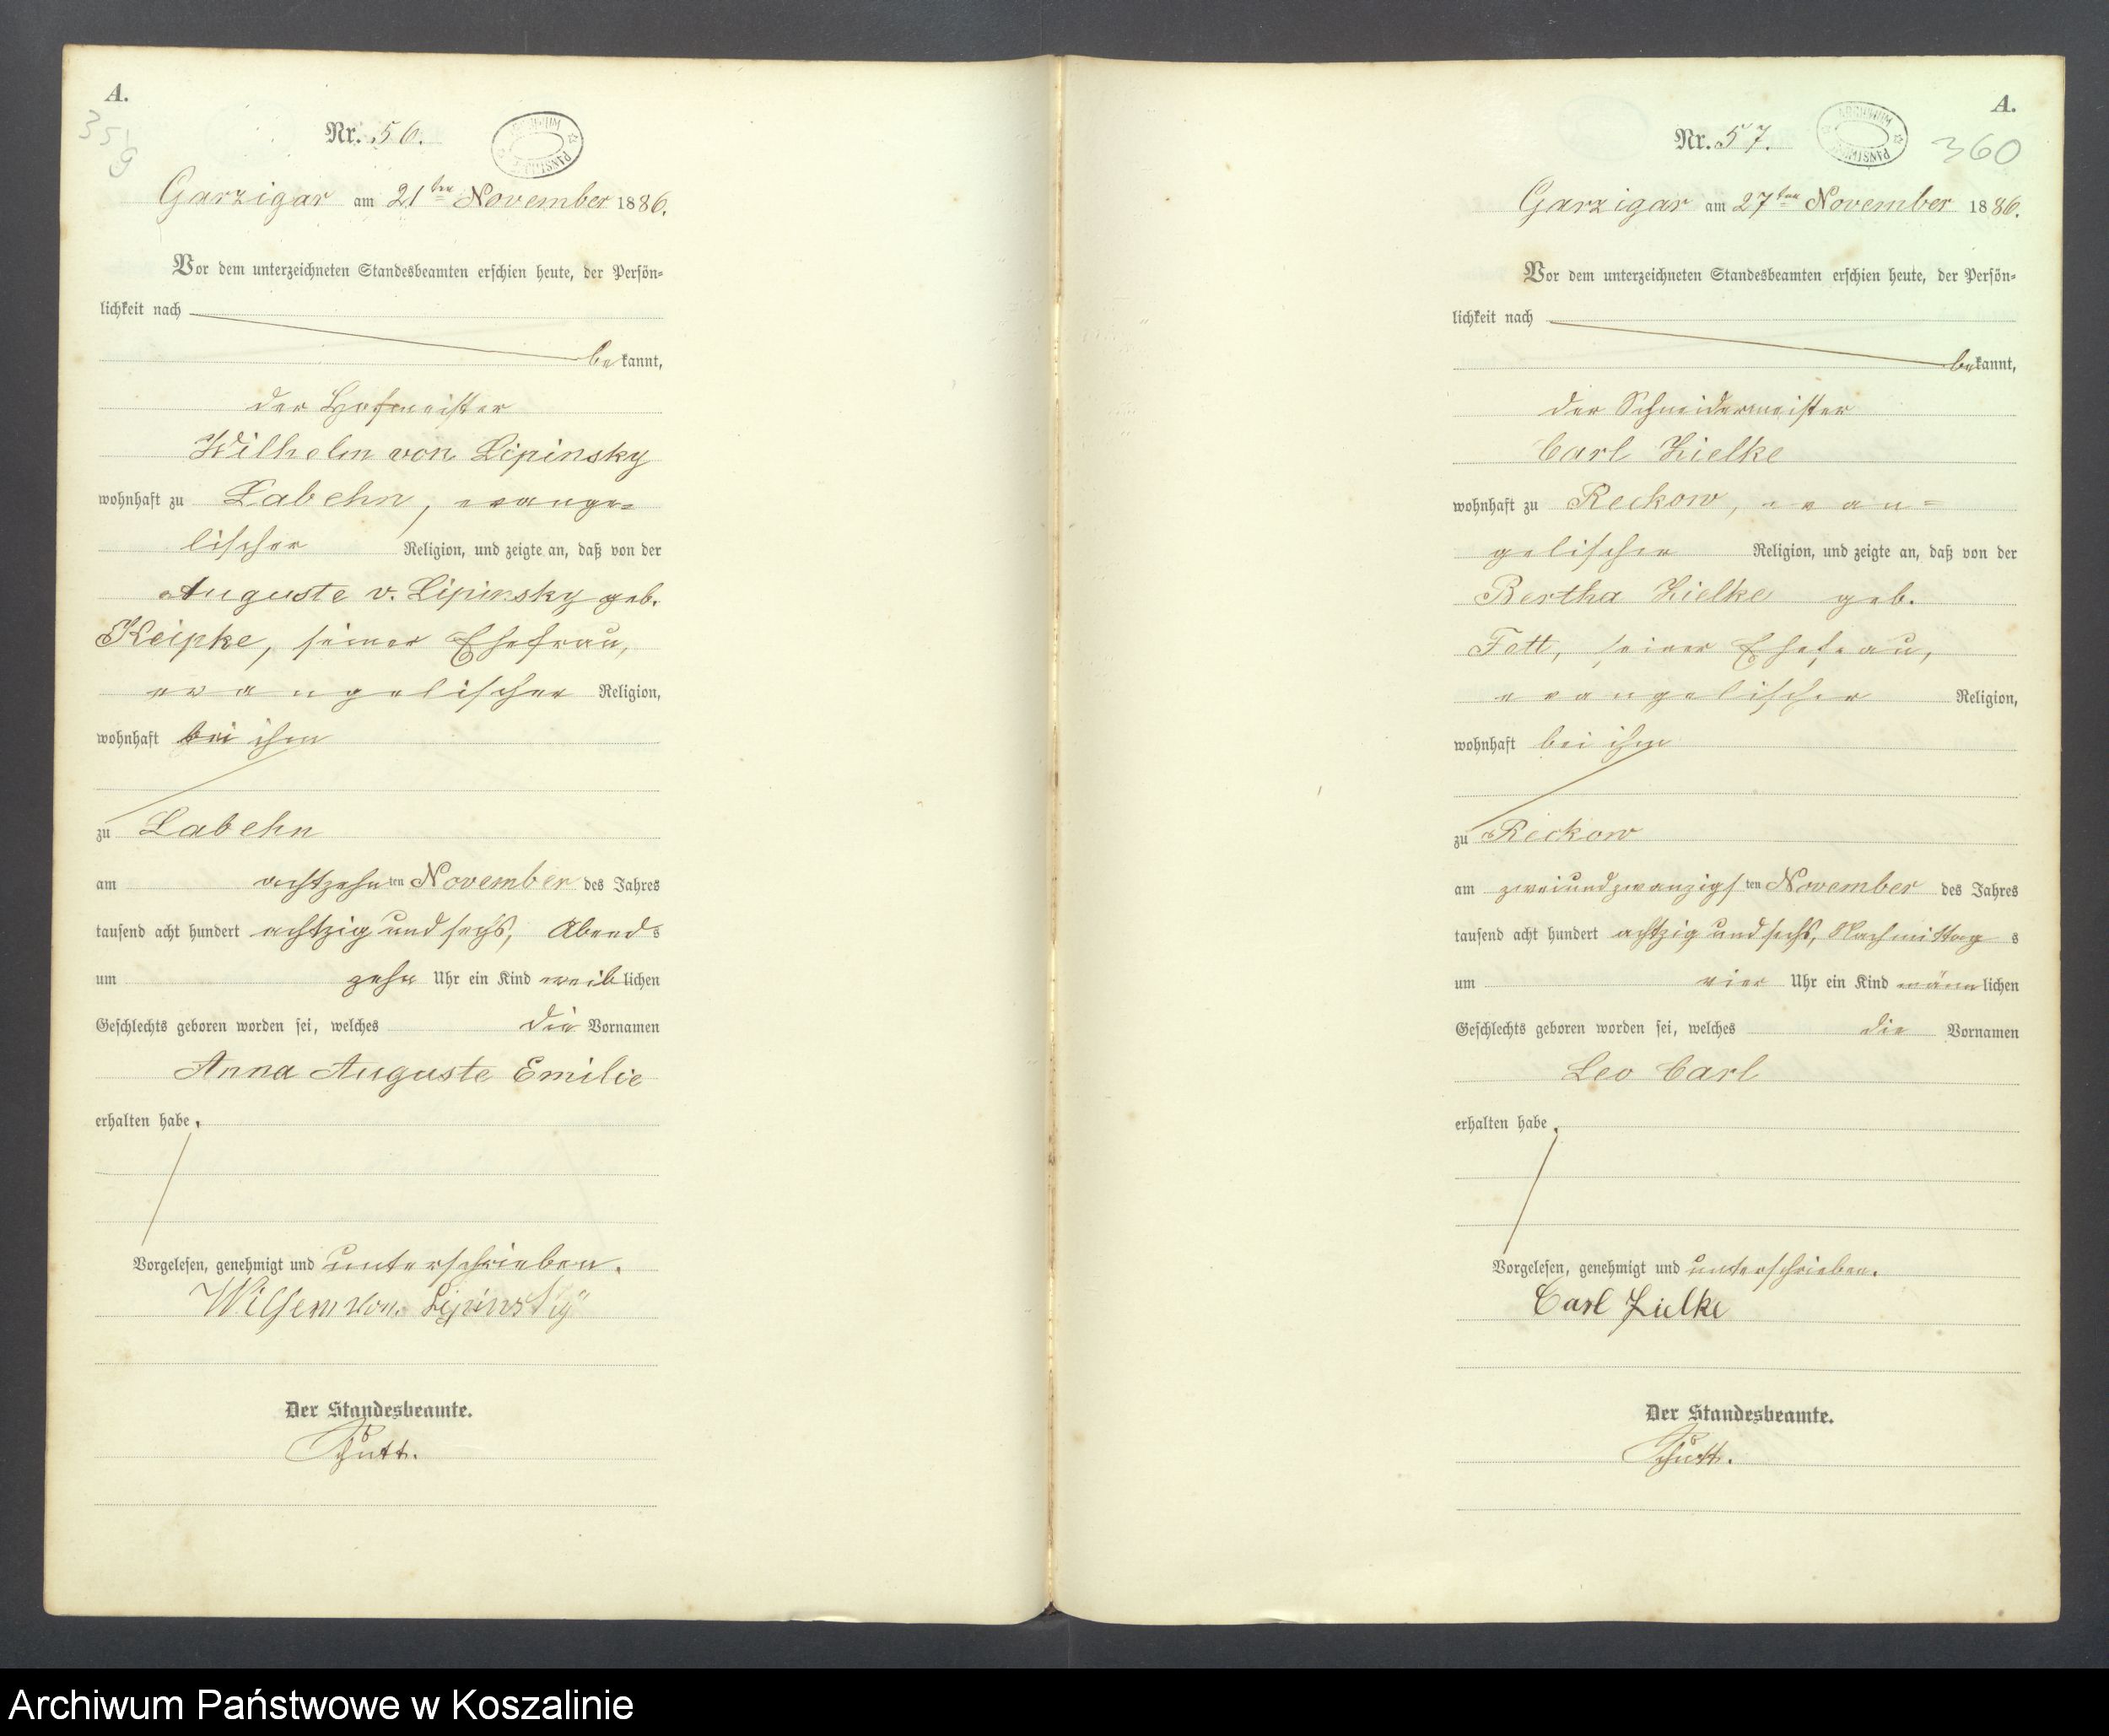 A.
359
Nr. 56.
ARCHIWUM PAŃSTWOWE
Garzigar am 21ten November 1886.
Vor dem unterzeichneten Standesbeamten erschien heute, der Persön-
lichkeit nach
bekannt,
der Hofmeister
Wilhelm von Lipinsky
wohnhaft zu Labehn, evange-
lischer Religion, und zeigte an, daß von der
Auguste v. Lipinsky geb.
Keipke, seiner Ehefrau,
evangelischer Religion,
wohnhaft bei ihm
zu Labehn
am achtzehnten November des Jahres
tausend acht hundert achtzig und sechs, Abends
um zehn Uhr ein Kind weiblichen
Geschlechts geboren worden sei, welches die Vornamen
Anna Auguste Emilie
erhalten habe.
Vorgelesen, genehmigt und unterschrieben.
Wilhem von Lipinsky
Der Standesbeamte.
A.
360
Nr. 57.
ARCHIWUM PAŃSTWOWE
Garzigar am 27ten November 1886.
Vor dem unterzeichneten Standesbeamten erschien heute, der Persön-
lichkeit nach
bekannt,
der Schneidermeister
Carl Zielke
wohnhaft zu Reckow, evan=
gelischer Religion, und zeigte an, daß von der
Bertha Zielke geb.
Fett, seiner Ehefrau,
evangelischer Religion,
wohnhaft bei ihm
zu Reckow
am zweiundzwanzigsten November des Jahres
tausend acht hundert achtzig und sechs, Nachmittags
um vier Uhr ein Kind männlichen
Geschlechts geboren worden sei, welches die Vornamen
Leo Carl
erhalten habe.
Vorgelesen, genehmigt und unterschrieben.
Carl Zielke
Der Standesbeamte.
Archiwum Państwowe w Koszalinie